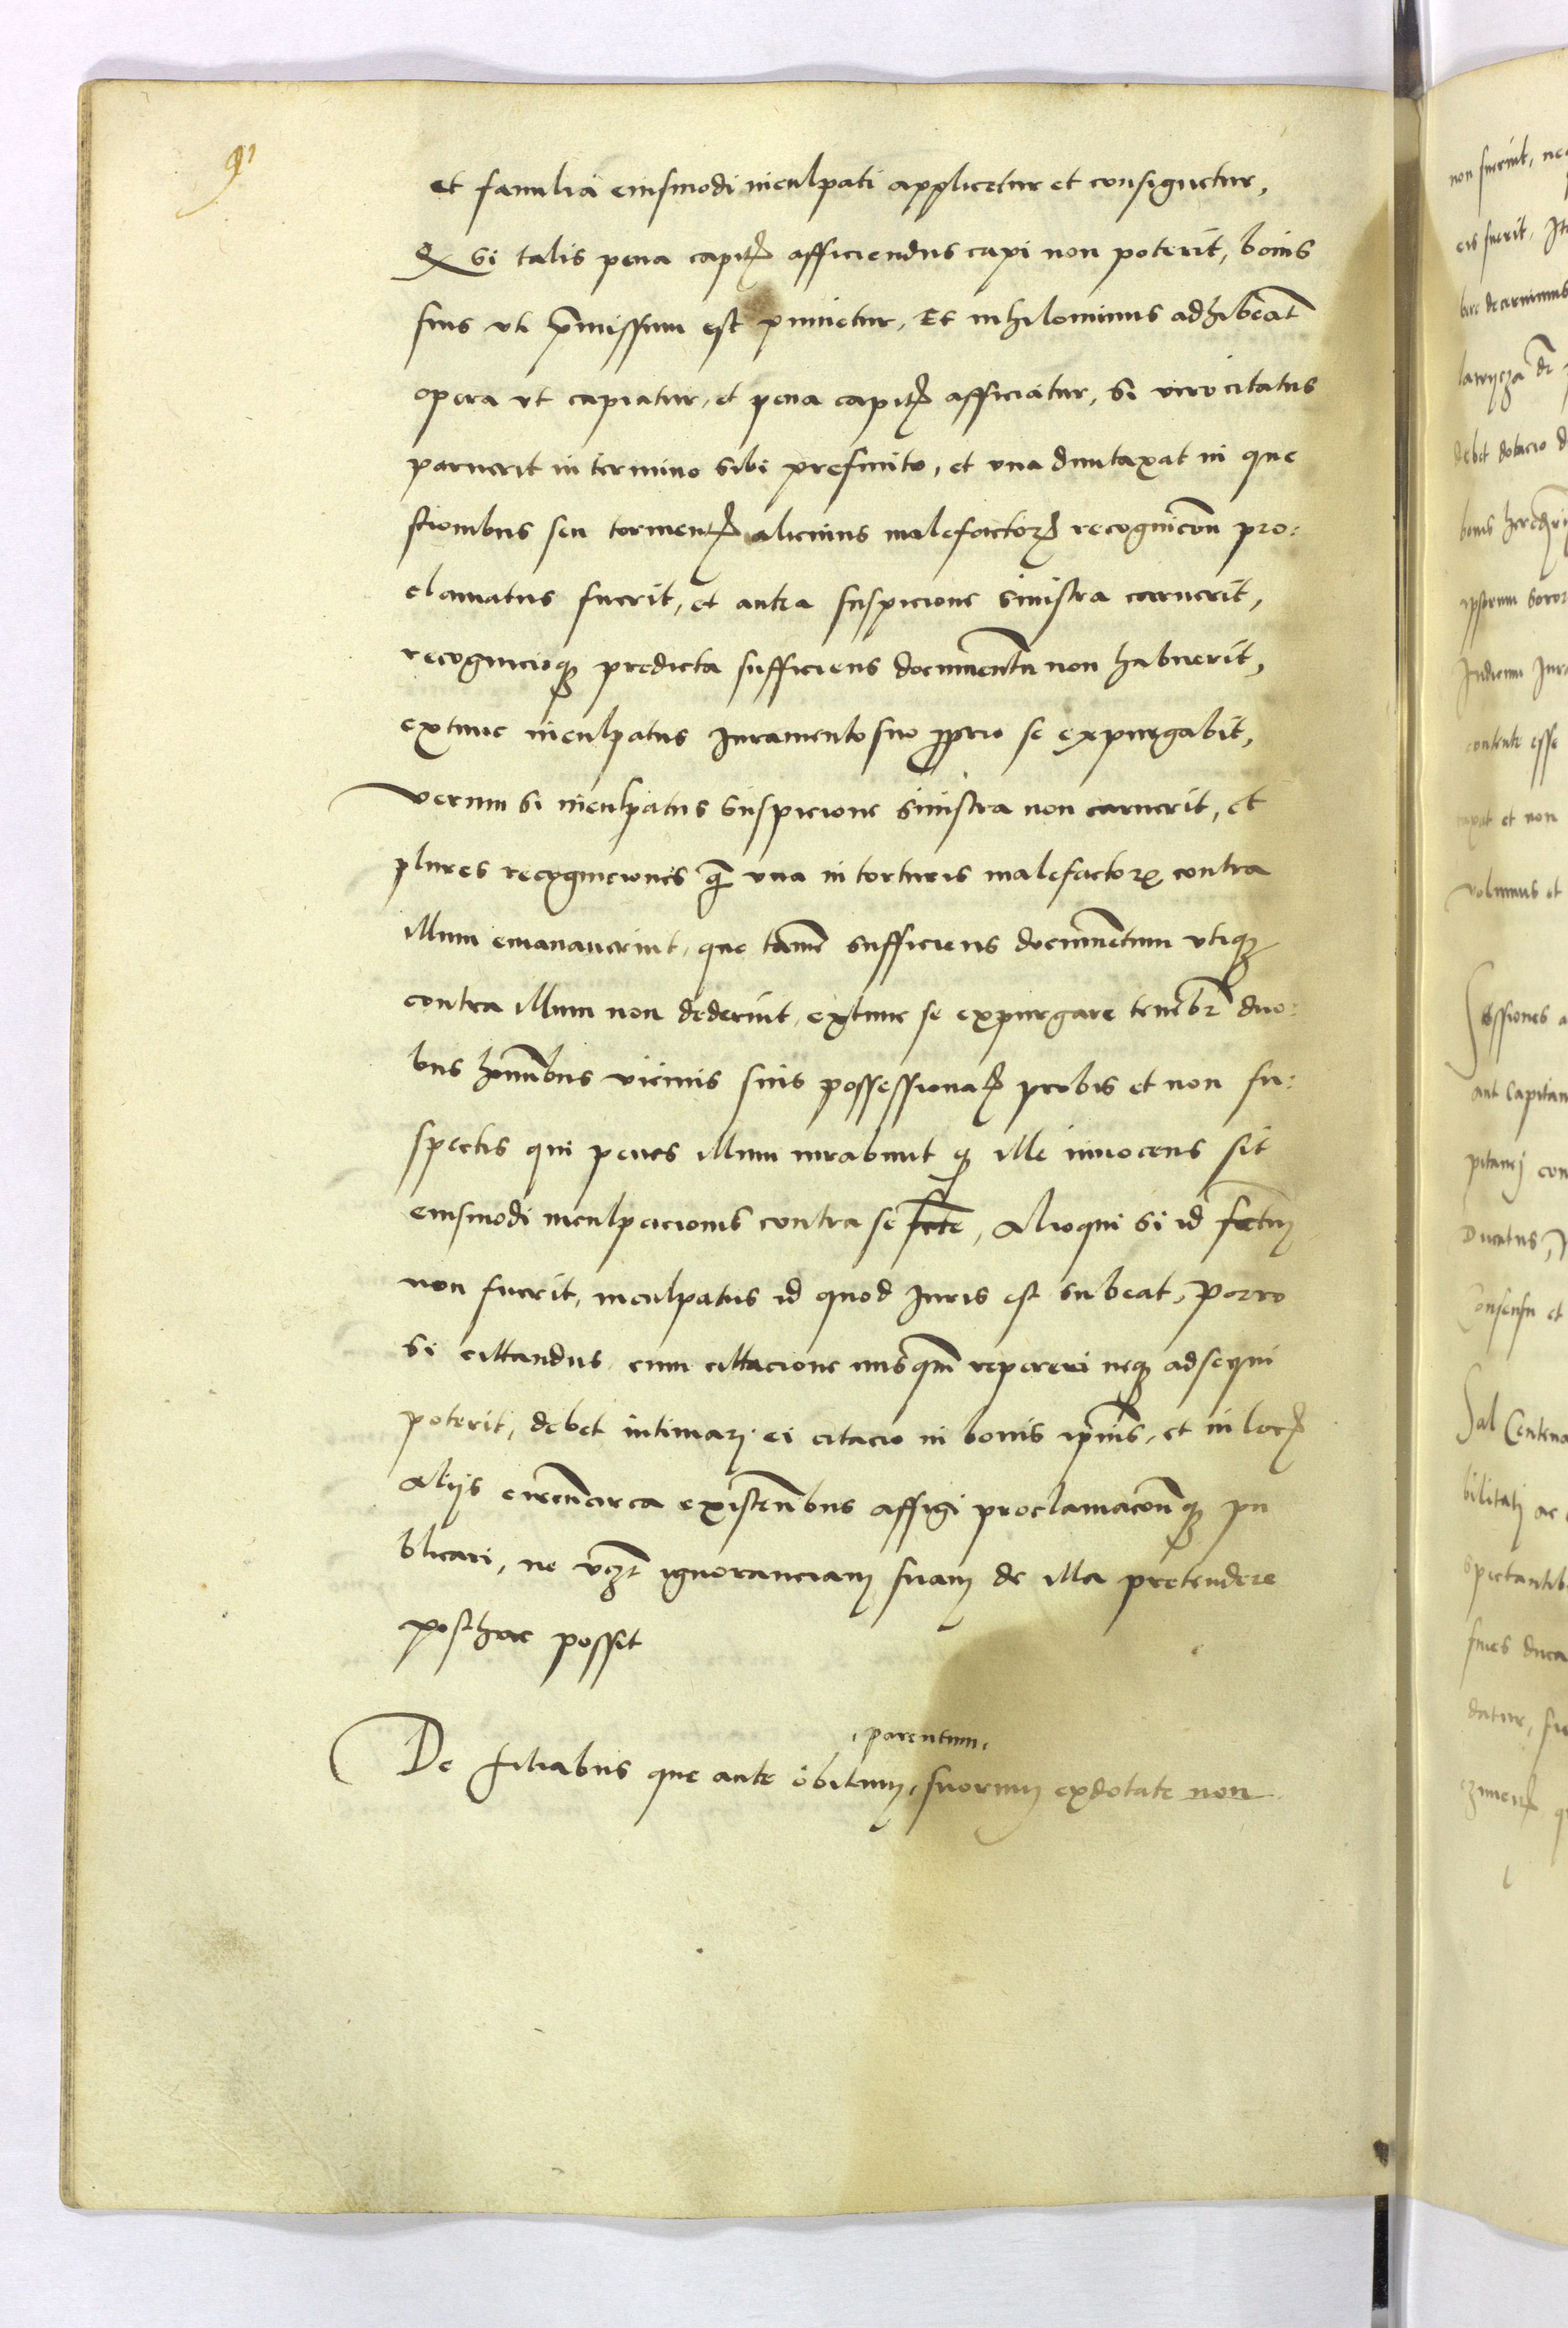 91
et familiä eiusmodi inculpati applicetur et consignetur,
Qz Si talis pena capitꝭ afficiendus capi non poterit, bonis
suis vti p̄missum est punietur, Et nihilominus adhibeat̄
opera vt capiatur, et pena capitꝭ afficiatur, Si vero citatus
paruerit in termino sibi prefinito, et vna duntaxat in que
stionibus seu tormentꝭ alicuius malefactorꝭ recognicōn pro:
clamatus fuerit, et antea suspicione sinistra caruerit,
recognicioqꝫ predicta sufficiens documentū non habuerit,
extunc inculpatus Juramento suo ꝓprio se expurgabit,
verum si inculpatus suspicione sinistra non caruerit, et
plures recogniciones qꝫ vna in torturis malefactorꝝ contra
illum emanauerint, que tamē sufficiens documentum vtiqꝫ
contra illum non dederint, extunc se expurgare tenebr̄ duo:
bus hōminibus vicinis suis possessionatꝭ probis et non su:
spectis qui penes illum iurabunt qꝫ ille innocens sit
eiusmodi inculpacionis contra se fcte, Alioqui si id fctm
non fuerit, inculpatus id quod Juris est subeat, Porro
Si cittandus cum cittacione nusqm̄ reperiri neqꝫ adsequi
poterit, debet intimari ei citacio in bonis ip̄ius, et in locꝭ
alijs circumcirca existentibus affigi proclamacōnqꝫ pu
blicari, ne vꝫt ignoranciam suam de illa pretendere
posthac possit
De filiabus que ante obitum, suorum exdotate non
, parentum,
non fuerint, ne
eis fuerit, It
bere decernimus
debet dotacio d
ipsorum soror
contente esse
et non
volumus et
Sessiones a
aut Capitan
pitanej con
Ducatus,
Consensu et
Sal Centena
bilitatj ac
spectantib
fines duca
datur, su